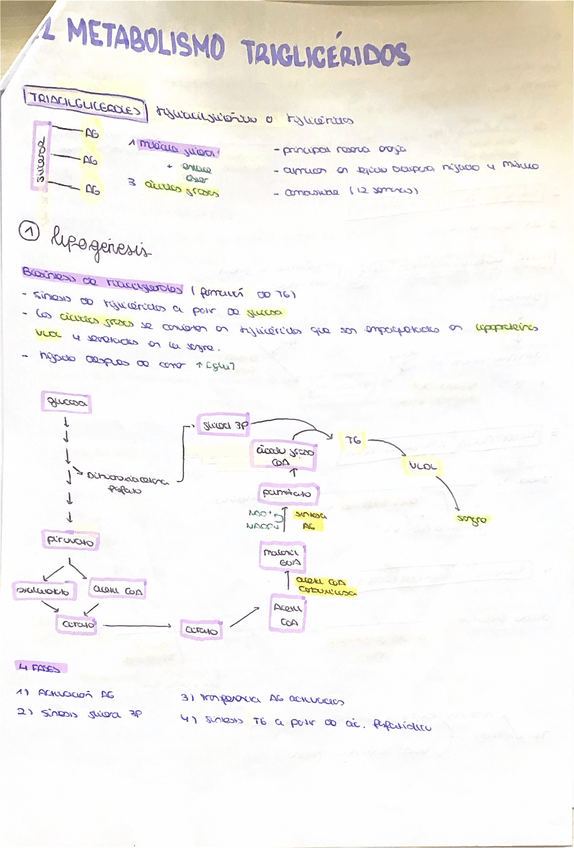 METABOLISMO TRIGLICÉRIDOS
TRIACILGLICEROLES
glicerol
AG
AG
AG
1 molécula glicerol
+ enlace
éster
3 ácidos grasos
- principal reserva
- almacén en tejido adiposo hígado y músculo
- (12 semanas)
① lipogénesis
Biosíntesis de triacilgliceroles (formación de TG)
- Síntesis de triglicéridos a partir de glucosa
- Los ácidos grasos se convierten en triglicéridos que son empaquetados en lipoproteínas
VLDL y secretadas en la sangre.
- hígado después de comer ↑[glu]
glucosa
Dihidroxiacetona
fosfato
piruvato
oxalacetato
acetil CoA
citrato
citrato
Acetil
CoA
acetil CoA
carboxilasa
malonil
CoA
NAD+
NADPH
síntesis
AG
palmitato
ácido graso
CoA
glicerol 3P
TG
VLDL
sangre
4 FASES
1) Activación AG
2) Síntesis glicerol 3P
3) transferencia AG activados
4) Síntesis TG a partir de ác. fosfatídico